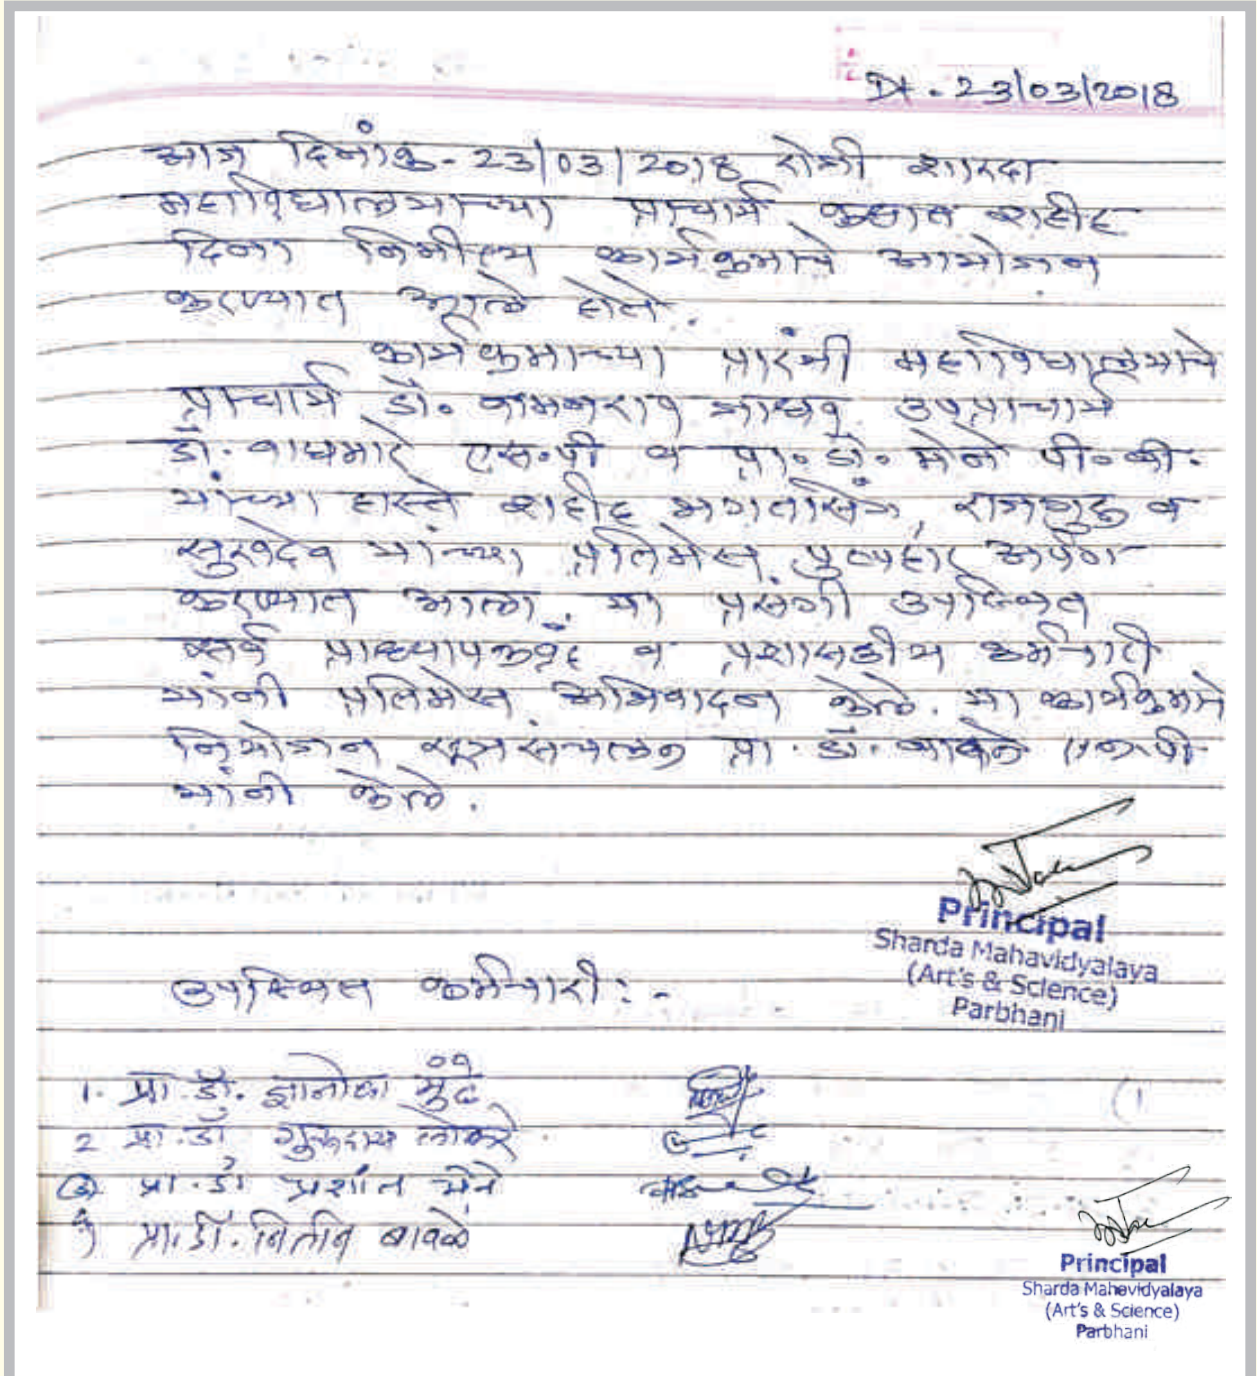 दि. 23/03/2018
आज दिनांक - 23/03/2018 रोजी शारदा
महाविद्यालयाच्या प्राचार्य कक्षात शहीद
दिना निमीत्य कार्यक्रमाचे आयोजन
करण्यात आले होते.
कार्यक्रमाच्या प्रारंभी महाविद्यालयाचे
प्राचार्य डॉ. श्यामराव जाधव, उपप्राचार्य
डॉ. वाघमारे एस.पी व प्रा. डॉ. मेने पी.व्ही.
यांच्या हास्ते शहीद भगतसिंग, राजगुरु व
सुखदेव यांच्या प्रतिमेस पुष्पहार अर्पण
करण्यात आला. या प्रसंगी उपस्थित
सर्व प्राध्यापकवृंद व प्रशासकीय कर्मचारी
यांनी प्रतिमेस अभिवादन केले. या कार्यक्रमाचे
नियोजन सूत्रसंचलन प्रा. डॉ. बावळे एन.पी
यांनी केले.
Principal
Sharda Mahavidyalaya
(Art's & Science)
Parbhani
उपस्थित कर्मचारी : -
1. प्रा. डॉ. ज्ञानोबा मुंढे
2 प्रा. डॉ
③ प्रा. डॉ प्रशांत मेने
4) प्रा. डॉ. नितीन बावळे
Principal
Sharda Mahavidyalaya
(Art's & Science)
Parbhani